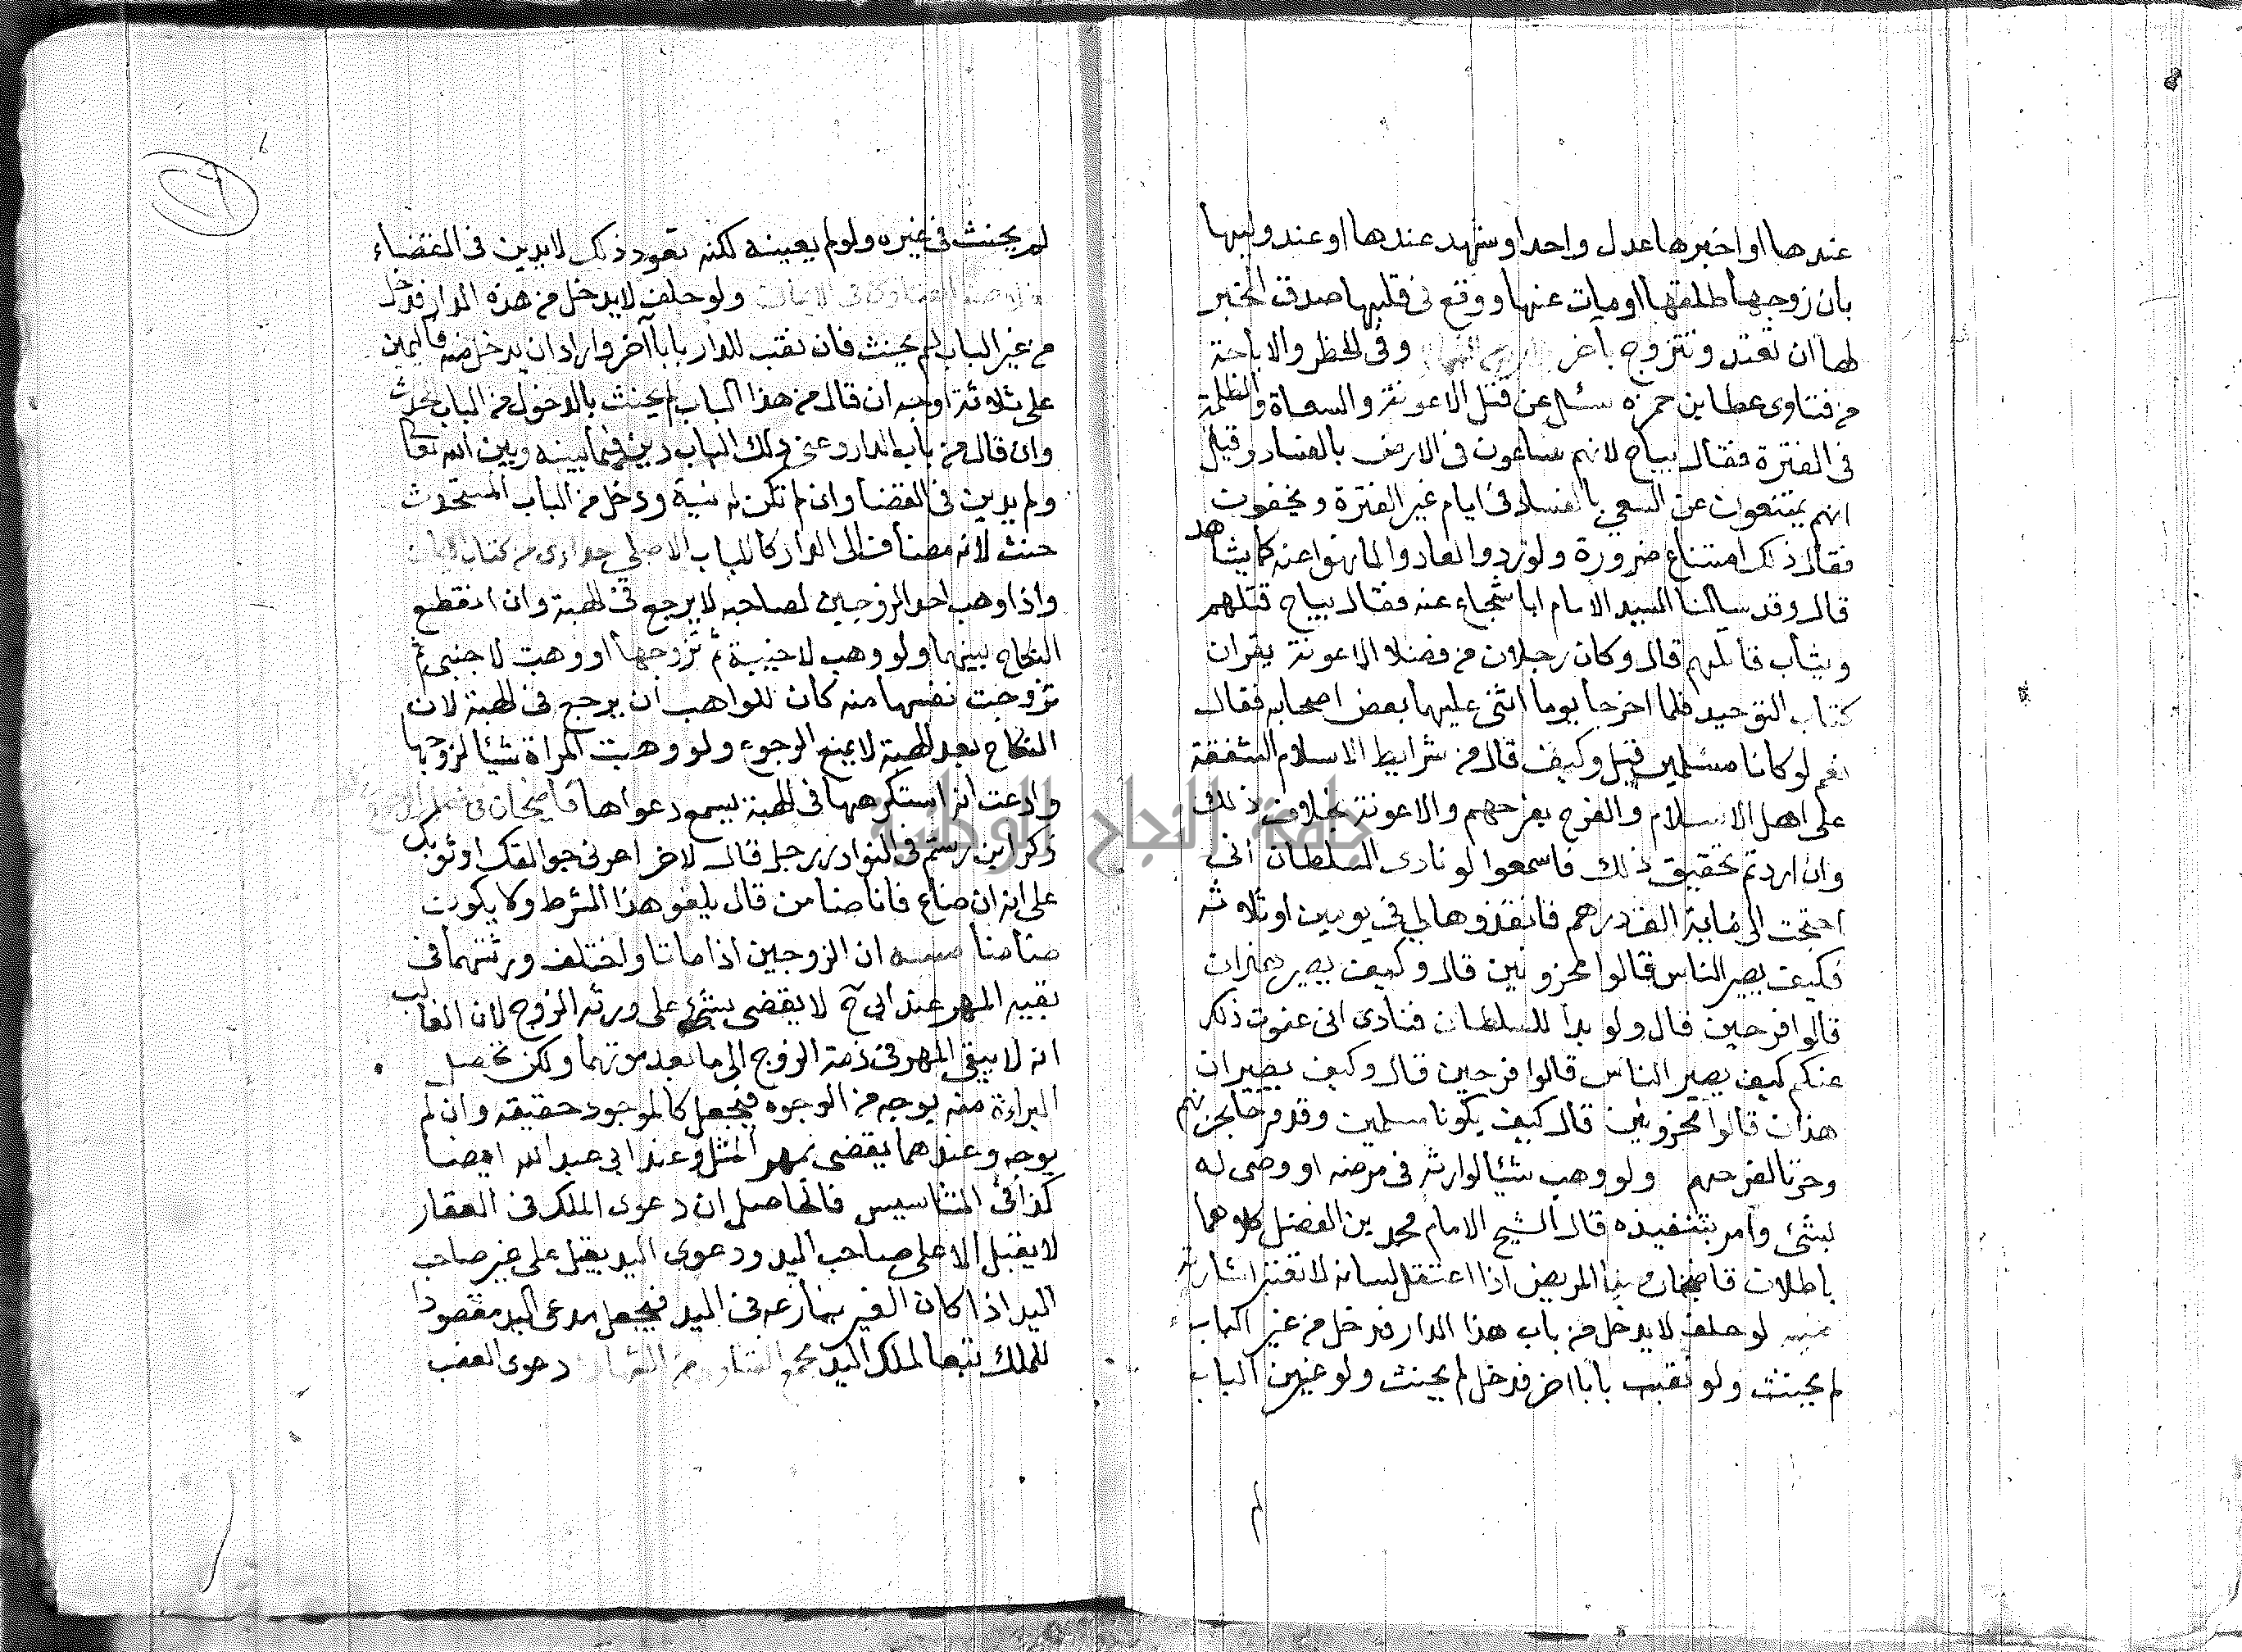 عندها او اخبرها عدل واحد او شهد عندها او عند وليها
بان زوجها طلقها او مات عنها ووقع فى قلبها صدق الخبر
لها ان تعتد وتتزوج باخر وفى الحظر والاباحة
من فتاوى عطا بن حمزه سئل عن قتل الاعونة والسعاة والظلمة
فى الفترة فقال يباح لانهم ساعون فى الارض بالفساد وقيل
انهم يمتنعون عن السعي بالفساد فى ايام غير الفترة ويخفون
فقال ذلك امتناع ضرورة ولو ردوا لعادوا لما نهوا عنه كما يشاهد
قال وقد سالنا السيد الامام ابا شجاع عنه فقال يباح قتلهم
ويثاب قاتلهم قال وكان رجلان من فضلا الاعونة يقران
كتاب التوحيد فلما اخرجا يوما اثنى عليهما بعض اصحابه فقال
نعم لو كانا مسلمين قيل وكيف قال من شرايط الاسلام الشفقة
على اهل الاسلام والفرح بفرحهم والاعونة بخلاف ذلك
وان اردتم تحقيق ذلك فاسمعوا لو نادى السلطان انى
احتجت الى ماية الف درهم فانقذوها لي فى يومين او ثلاثة
فكيف يصير الناس قالوا محزونين قال وكيف يصير هذان
قالوا فرحين قال ولو بدا للسلطان فنادى انى عفوت ذلك
عنكم كيف يصير الناس قالوا فرحين قال وكيف يصيران
هذان قالوا محزونين قال كيف يكونا مسلمين وقد فرحا بحزنهم
وحزنا لفرحهم ولو وهب شيئا لوارثه فى مرضه او وصى له
بشئ وامر بتنفيذه قال الشيخ الامام محمد بن الفضل كلاهما
باطلان قاضيخان المريض اذا اعتقل لسانه لا تعتبر اشارته
لو حلف لا يدخل من باب هذا الدار فدخل من غير الباب
لم يحنث ولو نقب بابا اخر فدخل لم يحنث ولو عين الباب
لم
لم يحنث فى غيره ولو لم يعينه لكنه تعود ذلك لا يدين فى القضاء
ولو حلف لا يدخل من هذه الدار فدخل
من غير الباب لم يحنث فان نقب للدار بابا آخر واراد ان يدخل منه فاليمين
على ثلاثة اوجه ان قال من هذا الباب لم يحنث بالدخول من الباب
وان قال من باب الدار وعنى ذلك الباب دين فيما بينه وبين الله تعا
ولم يدين فى القضا وان لم تكن له نية ودخل من الباب المستحدث
حنث لانه مضاف الى الدار كالباب الاصلي من كتاب
واذا وهب احد الزوجين لصاحبه لا يرجع فى الهبة وان انقطع
النكاح بينهما ولو وهب لاجنبية ثم تزوجها او وهبت لاجنبى ثم
تزوجت نفسها منه كان للواهب ان يرجع فى الهبة لان
النكاح بعد الهبة لا يمنع الرجوع ولو وهبت المراة شيئا لزوجها
وادعت انه استكرهها فى الهبة يسمع دعواها قاضيخان فى
ذكر ابن رستم فى النوادر رجل قال لاخر اعرنى جوالقك او ثوبك
على انه ان ضاع فانا ضامن قال يلغو هذا الشرط ولا يكون
ضامنا ان الزوجين اذا ماتا واختلف ورثتهما فى
تقبيه المهر عند ابى ح لا يقضى بشئ على ورثه الزوج لان الغالب
انه لا يبقى المهر فى ذمة الزوج الى ما بعد موتهما ولكن تحصل
البراءة منه بوجه من الوجوه فيجعل كالموجود حقيقه وان لم
يوجد وعندهما يقضى بمهر المثل وعند ابي عبد الله ايضا
كذا فى التاسيس فالحاصل ان دعوى الملك فى العقار
لا يقبل الا على صاحب اليد ودعوى اليد يقبل على غير صاحب
اليد اذا كان الغير ينازعه فى اليد فيجعل مدعى اليد مقصودا
للملك تبعا لملك اليد دعوى الغصب
جامعة النجاح الوطنية